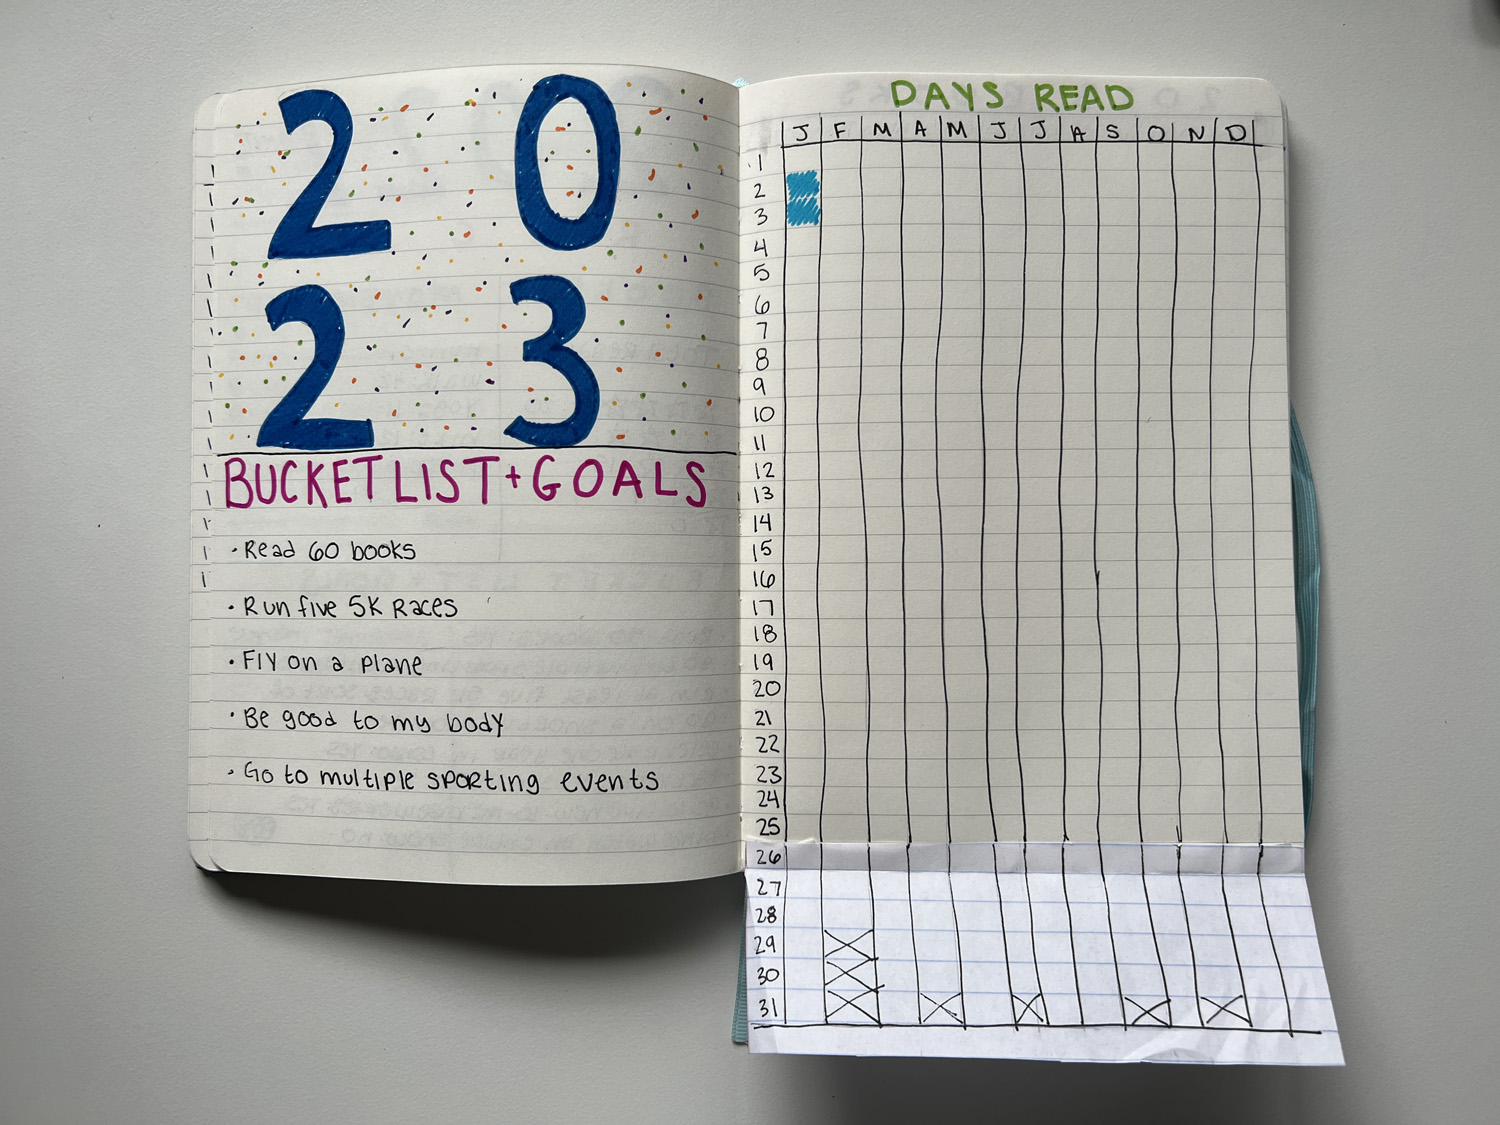 2 0
2 3
BUCKET LIST + GOALS
· Read 60 books
· Run five 5K Races
· Fly on a plane
· Be good to my body
· Go to multiple sporting events
DAYS READ
J F M A M J J A S O N D
1
2
3
4
5
6
7
8
9
10
11
12
13
14
15
16
17
18
19
20
21
22
23
24
25
26
27
28
29
30
31